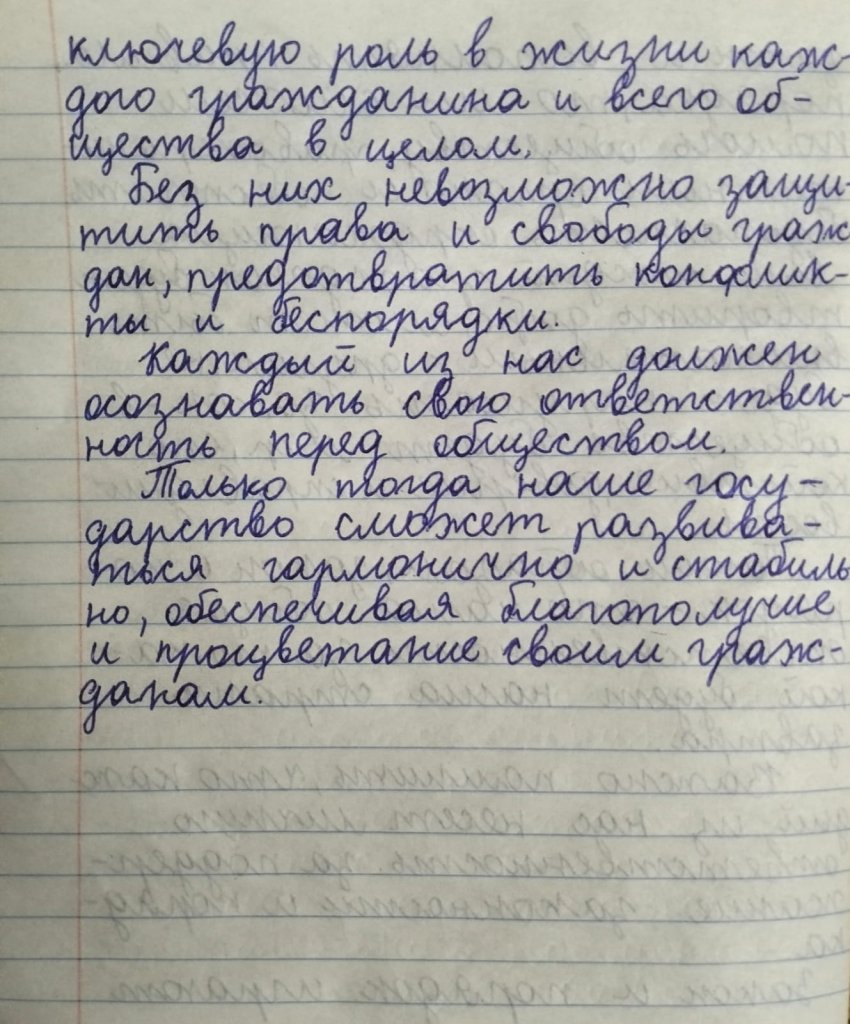 ключевую роль в жизни каж-
дого гражданина и всего об-
щества в целом.
Без них невозможно защи-
тить права и свободы граж
дан, предотвратить конфлик-
ты и беспорядки.
Каждый из нас должен
осознавать свою ответствен-
ность перед обществом.
Только тогда наше госу-
дарство сможет развива-
ться гармонично и стабиль
но, обеспечивая благополучие
и процветание своим граж-
данам.